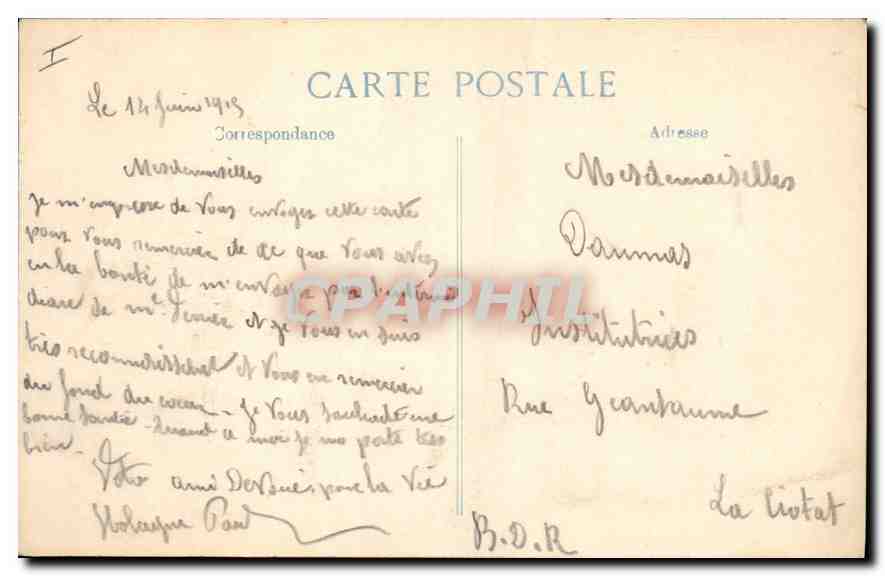 I
CARTE POSTALE
Le 14 Juin 1915
Correspondance
Adresse
Mesdemoiselles
Je m'empresse de vous envoyer cette carte
pour vous remercier de ce que vous avez
eu la bonté de m'envoyer par l'intermé
diare de Mr. et je vous en suis
très reconnaissant et vous en remercier
du fond du coeur - Je vous souhaite une
bonne santée - Quant a moi je me porte très
bien -
Votre ami Dévoué pour la vie
Paul
Mesdemoiselles
Daumas
Institutrices
Rue Geantaume
La Ciotat
B.D.R
CPAPHIL